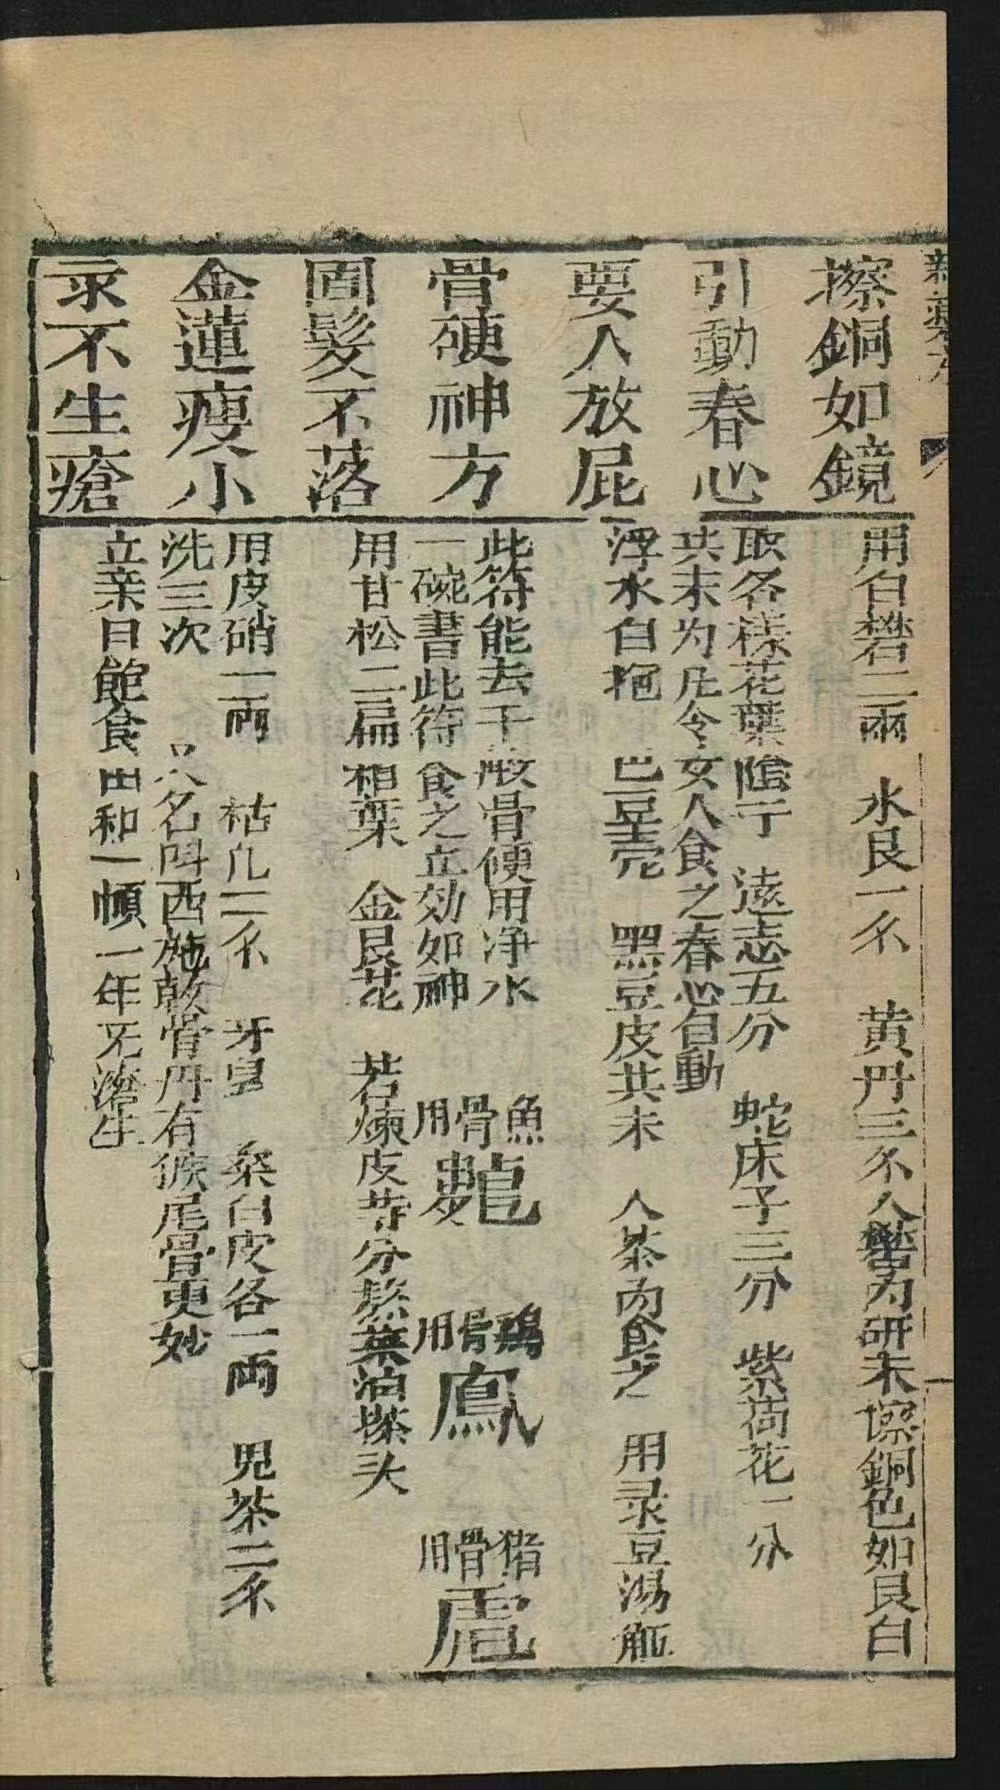 擦銅如鏡
用白礬二兩　水艮一不　黄丹三不入礬内研末擦銅色如艮白
引動春心
取各樣花葉陰干　遠志五分　蛇床子三分　紫荷花一分
共末为凡令女人食之春心自動
要人放屁
浮水白　巴豆壳　黑豆皮共末　入茶内食之　用录豆湯觧
骨硬神方
此符能去干般骨便用净水
一碗書此符食之立効如神
魚骨用
鷄骨用
猪骨用
固髮不落
用甘松二扁柏葉　金艮花　若煉皮等分熬葉油搽头
金蓮瘦小
用皮硝一両　枯凡二不　牙皂　桑白皮各一両　児茶二不
洗三次　只名叫西施軟骨丹有猴尾骨更妙
永不生瘡
立亲日飽食田和一頓一年无瘡生